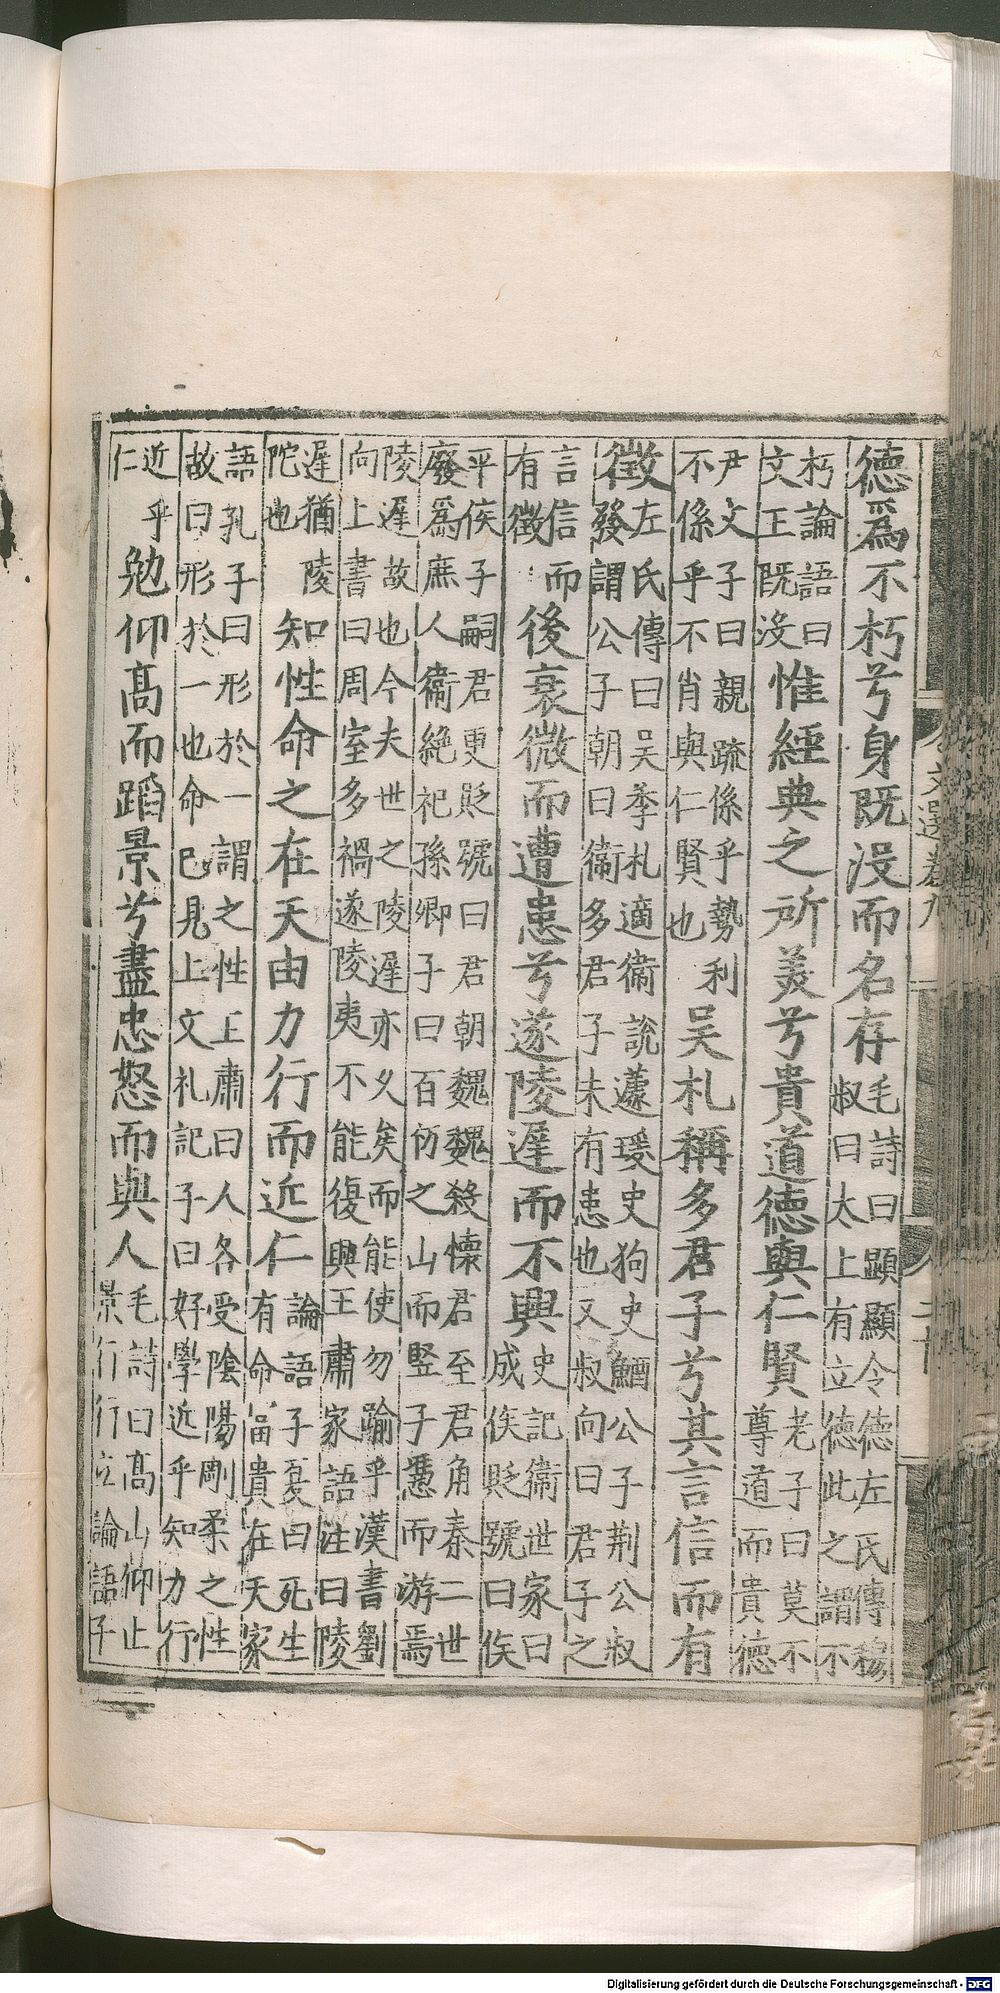 德爲不朽兮身既没而名存毛詩曰顯顯令德左氏傳穆叔曰太上有立德此之謂不
朽論語曰文王既没惟經典之所美兮貴道德與仁賢老子曰莫不尊道而貴德
尹文子曰親疏係乎勢利不係乎不肖與仁賢也吳札稱多君子兮其言信而有
徵左氏傳曰吳季札適衞說蘧瑗史狗史鰌公子荆公叔發謂公子朝曰衞多君子未有患也又叔向曰君子之
言信而有徵後衰微而遭患兮遂陵遲而不興史記衞世家曰成侯貶號曰侯
平侯子嗣君更貶號曰君朝魏魏殺懷君至君角秦二世廢爲庶人衞絶祀孫卿子曰百仞之山而竪子憑而游焉
陵遲故也今夫世之陵遲亦乆矣而能使勿踰乎漢書劉向上書曰周室多禍遂陵夷不能復興王肅家語注曰陵
遲猶陵陁也知性命之在天由力行而近仁論語子夏曰死生有命富貴在天家
語孔子曰形於一謂之性王肅曰人各受陰陽剛柔之性故曰形於一也命已見上文礼記子曰好學近乎知力行
近乎仁勉仰高而蹈景兮盡忠恕而與人毛詩曰高山仰止景行行止論語子
文選卷九
Digitalisierung gefördert durch die Deutsche Forschungsgemeinschaft - DFG